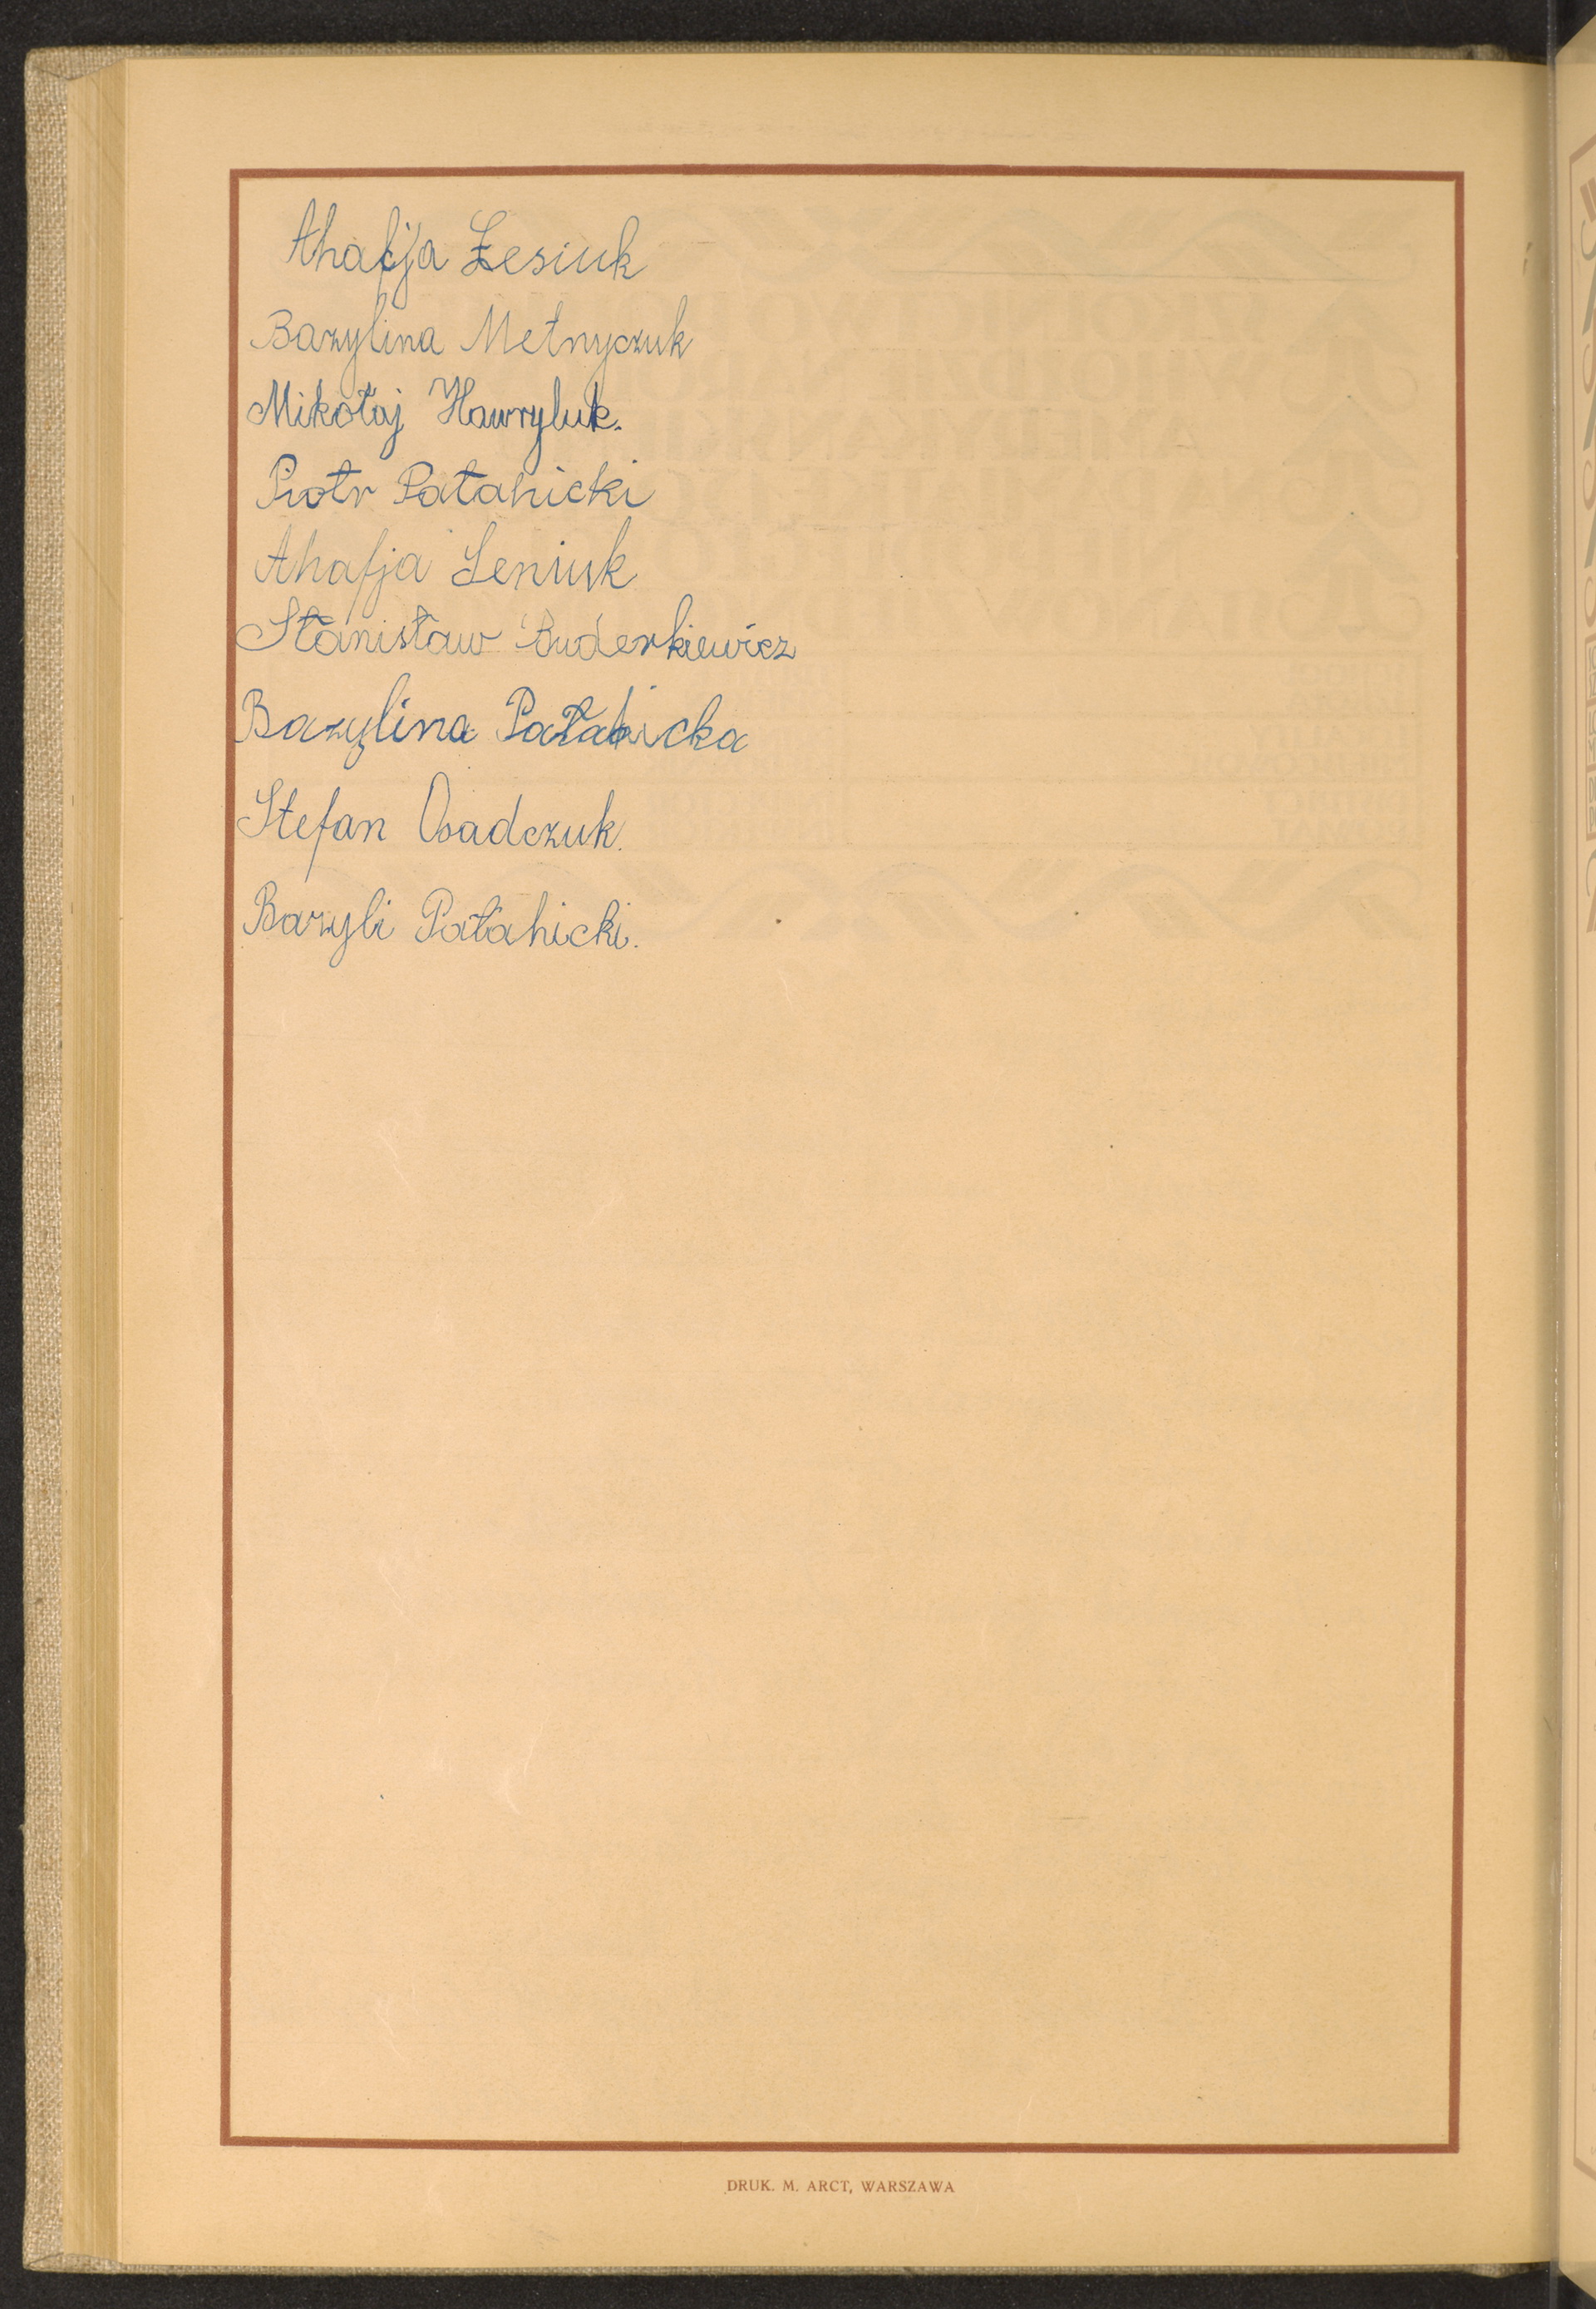 Ahafja Łesiuk
Bazylina Metnyczuk
Mikołaj Hawryluk.
Piotr Patahicki
Ahafja Leniuk
Stanisław Buderkiewicz
Bazylina Pałahicka
Stefan Osadczuk.
Bazyli Pałahicki.
DRUK. M. ARCT, WARSZAWA